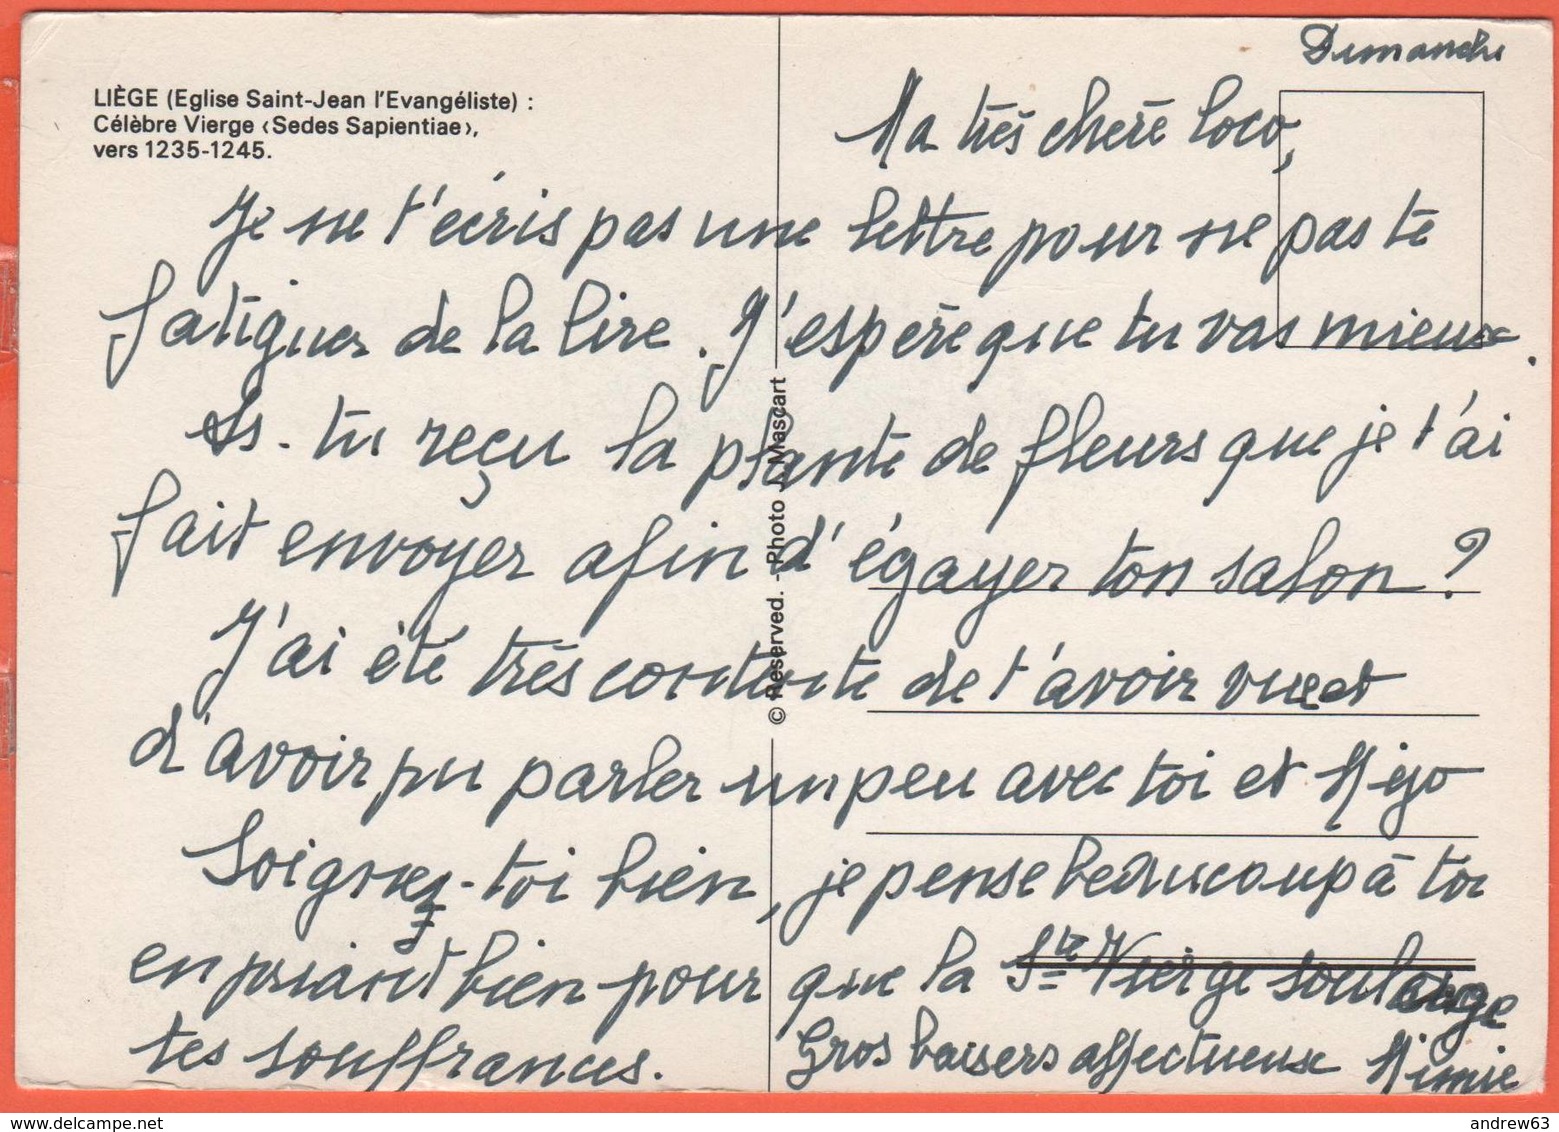 LIÈGE (Eglise Saint-Jean l'Evangéliste) :
Célèbre Vierge ‹Sedes Sapientiae›,
vers 1235-1245.
Dimanche
Ma très chère Loco,
Je ne t'écris pas une lettre pour ne pas te
fatiguer de la lire. J'espère que tu vas mieux.
As-tu reçu la plante de fleurs que je t'ai
fait envoyer afin d'égayer ton salon ?
J'ai été très contente de t'avoir vue et
d'avoir pu parler un peu avec toi et Mijo
Soignes-toi bien, je pense beaucoup à toi
en priant bien pour que la Ste Vierge soulage
tes souffrances. Gros baisers affectueux Mimie
© Reserved. - Photo J. Mascart
andrew63